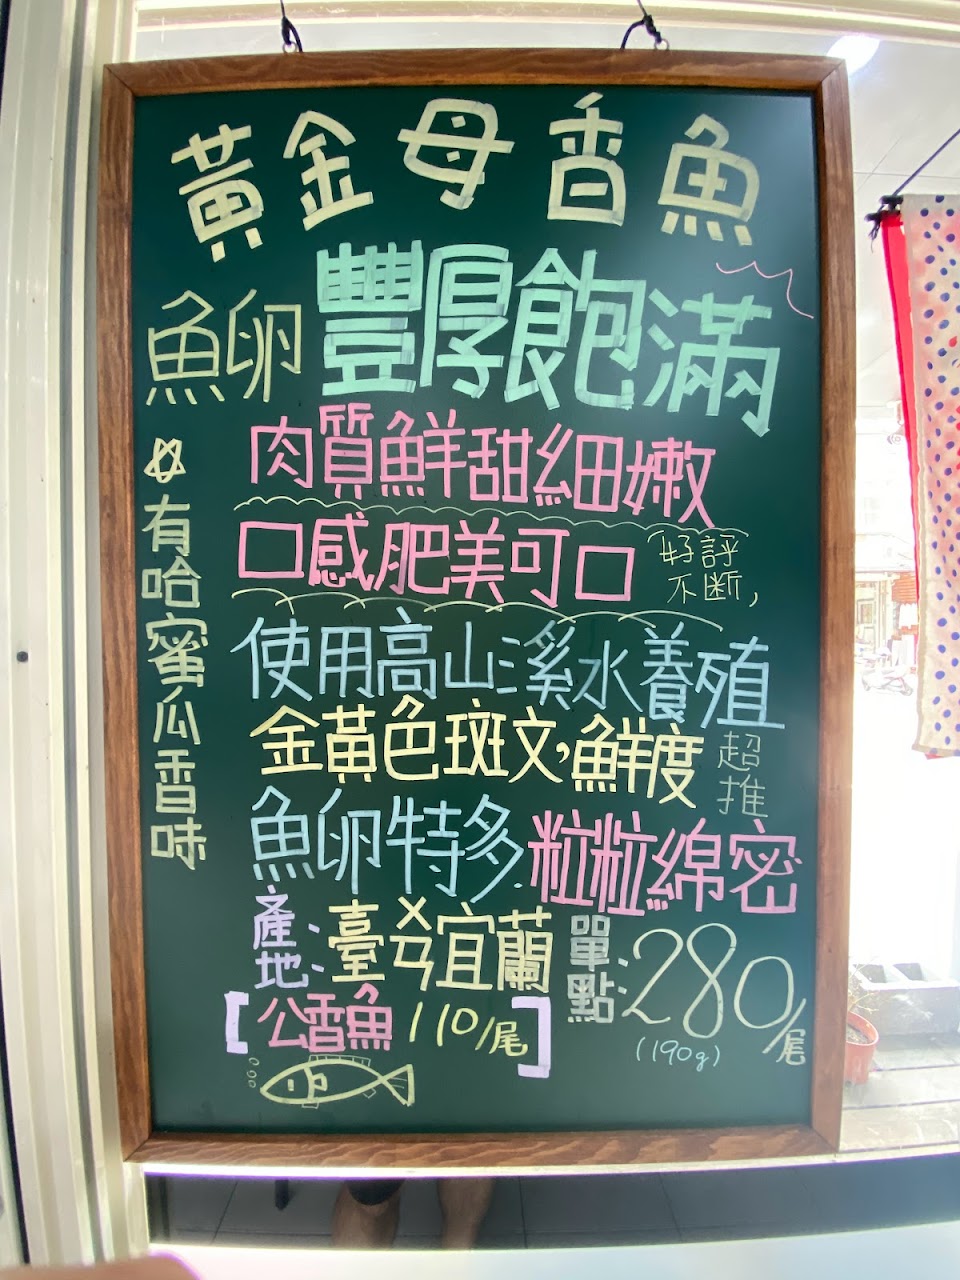 黃金母香魚
魚卵豐厚飽滿
肉質鮮甜細嫩
口感肥美可口
好評
不斷,
☆有哈蜜瓜香味
使用高山溪水養殖
金黃色斑文,鮮度
超推
魚卵特多粒粒綿密
產地:臺ㄨㄢ宜蘭
單點:280/尾
(190g)
[公香魚110/尾]